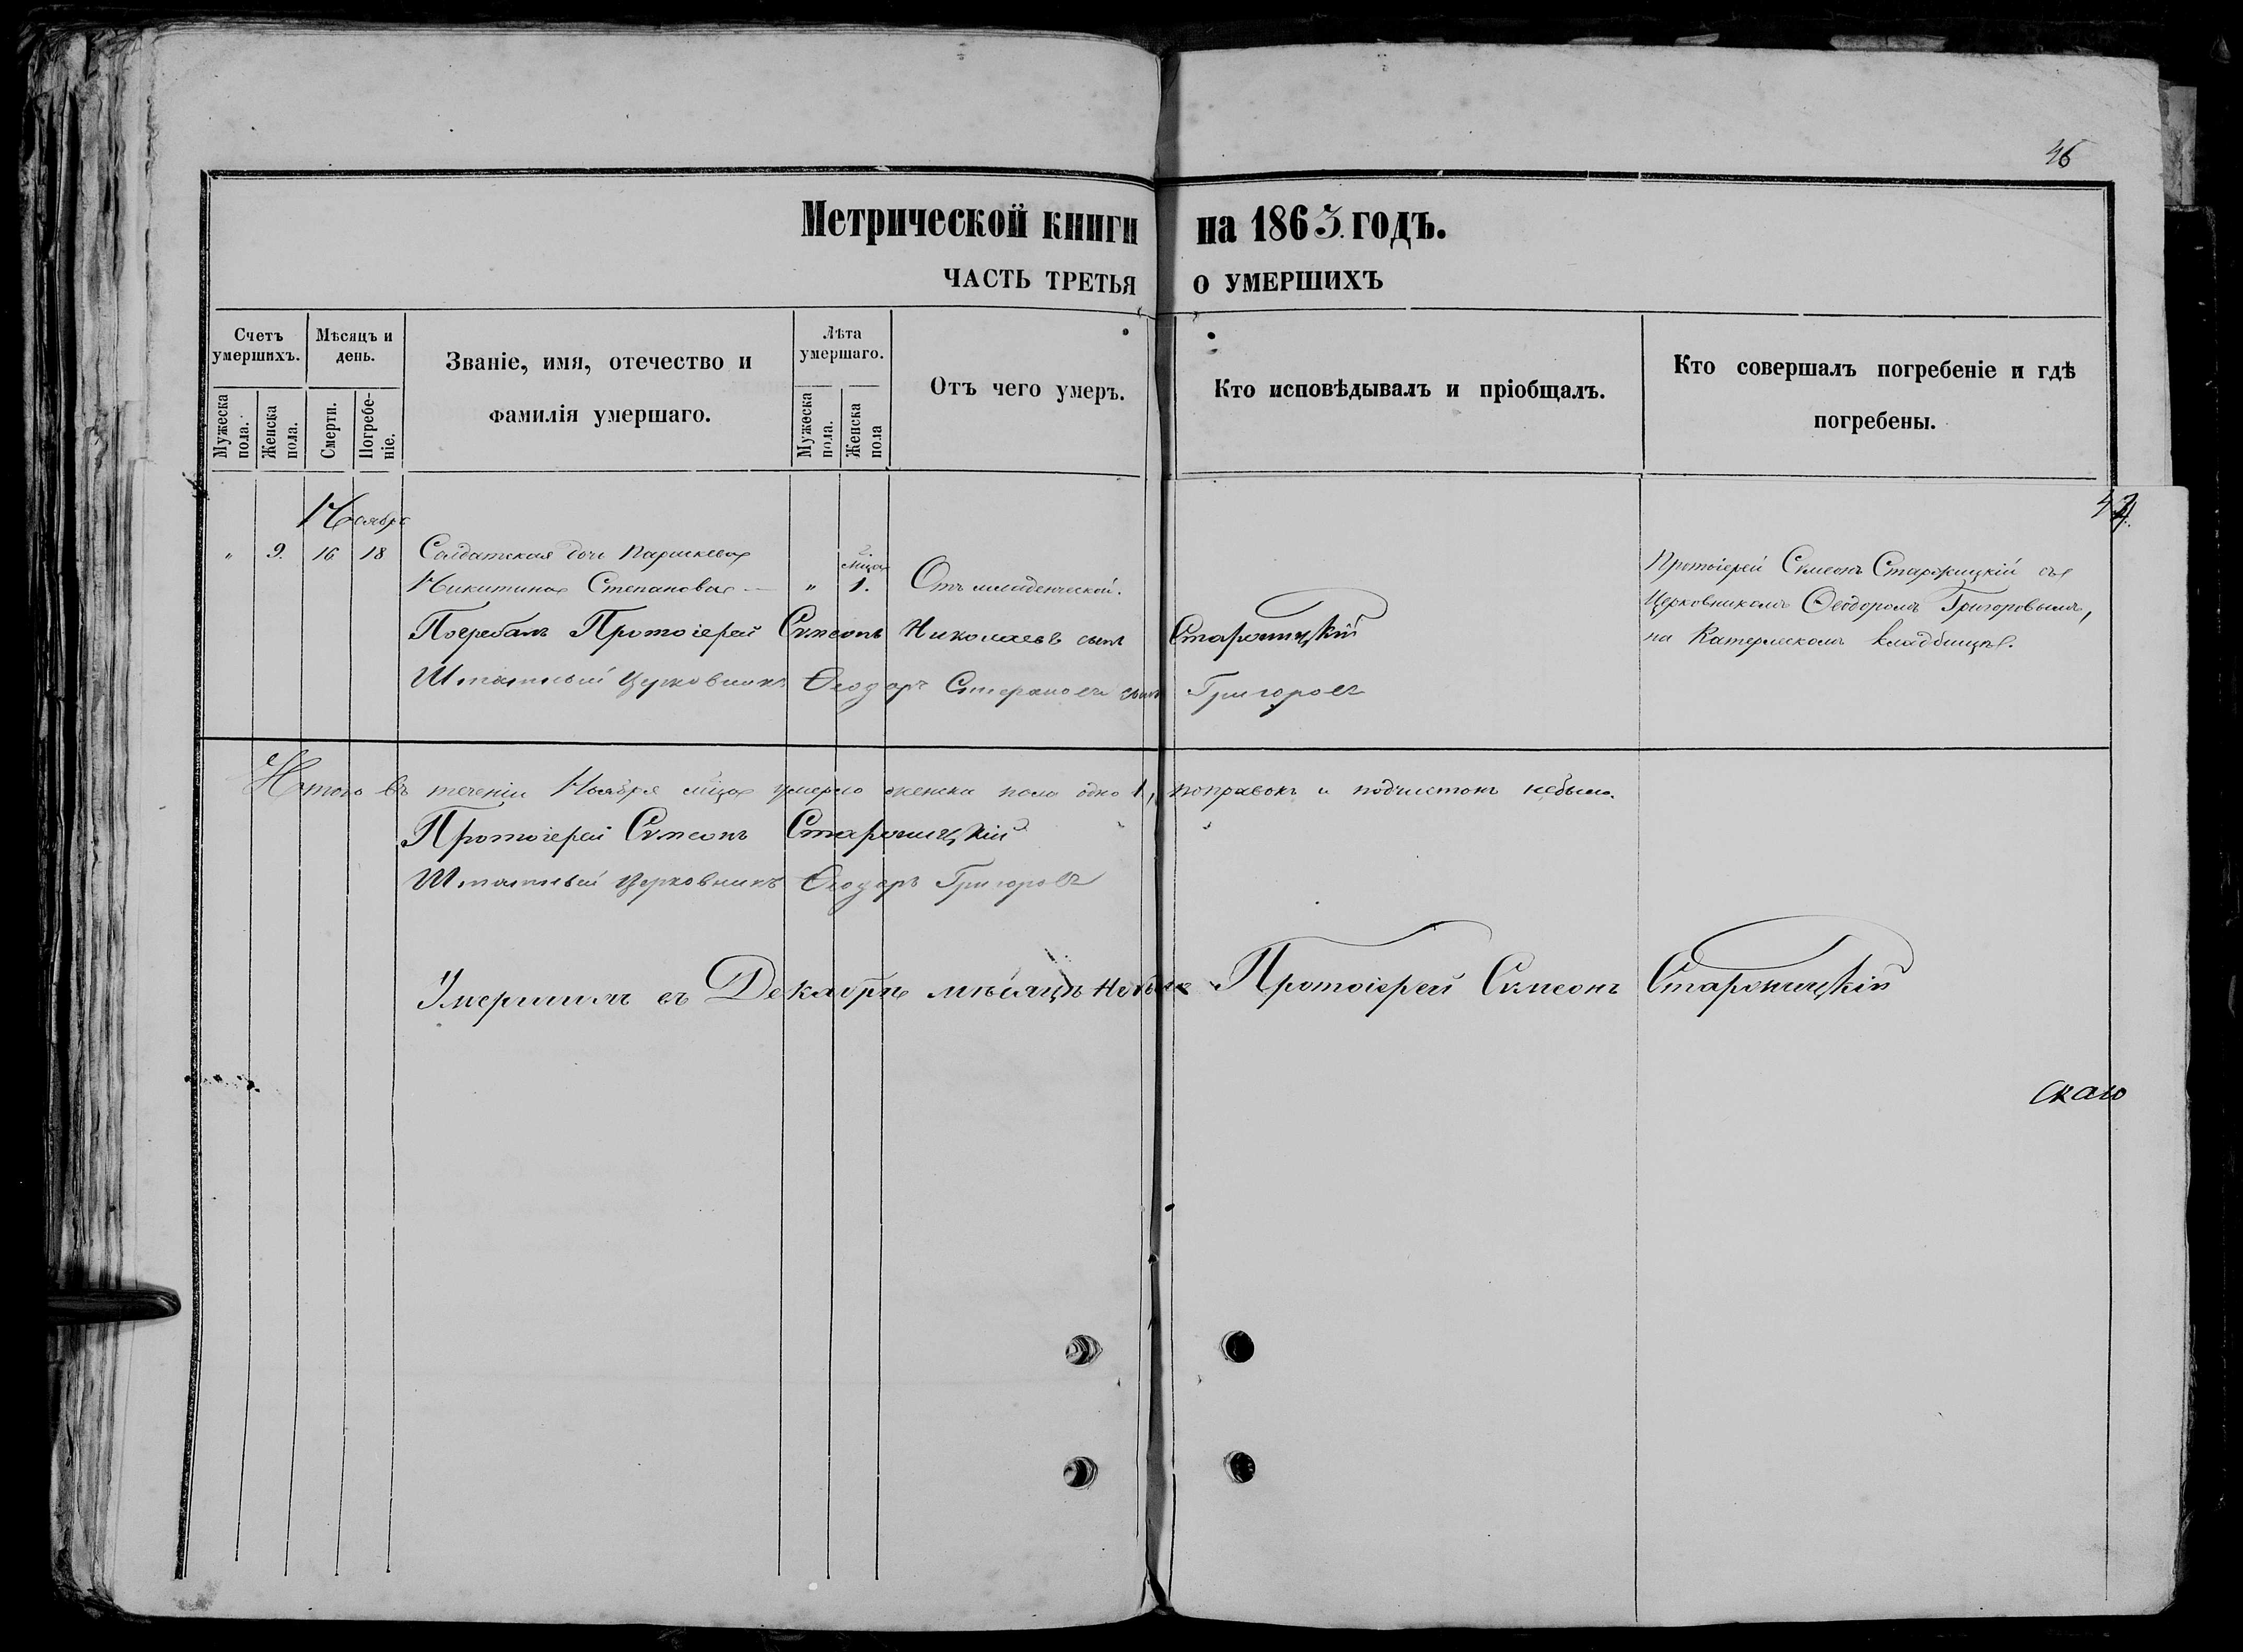 46
Метрической книги на 1863 годъ.
ЧАСТЬ ТРЕТЬЯ О УМЕРШИХЪ
Счетъ умершихъ.
Мужеска пола.
Женска пола.
Мѣсяцъ и день.
Смерти.
Погребе-
ніе.
Званіе, имя, отечество и
фамилія умершаго.
Лѣта умершаго.
Мужеска пола.
Женска пола
Отъ чего умеръ.
Кто исповѣдывалъ и пріобщалъ.
Кто совершалъ погребеніе и гдѣ
погребены.
Ноября
" 9. 16 18 Солдатская дочь Параскева
Никитина Степанова — " 1. мѣсяца Отъ младенческой.
Протоіерей Сѵмеонъ Старожицкій съ
Церковникомъ Ѳеодоромъ Григоровымъ,
на Катерлескомъ кладбищѣ.
Погребалъ Протоіерей Сѵмеонъ Николаевъ сынъ Старожицкій
Штатный Церковникъ Ѳеодоръ Стефановъ сынъ Григоровъ
Итого въ теченіи Ноября мѣсяца умерло женска пола одно 1, поправокъ и подчистокъ небыло.
Протоіерей Сѵмеонъ Старожицкій
Штатный Церковникъ Ѳеодоръ Григоровъ
Умершихъ въ Декабрѣ мѣсяцѣ небыло Протоіерей Сѵмеонъ Старожицкій
скаго